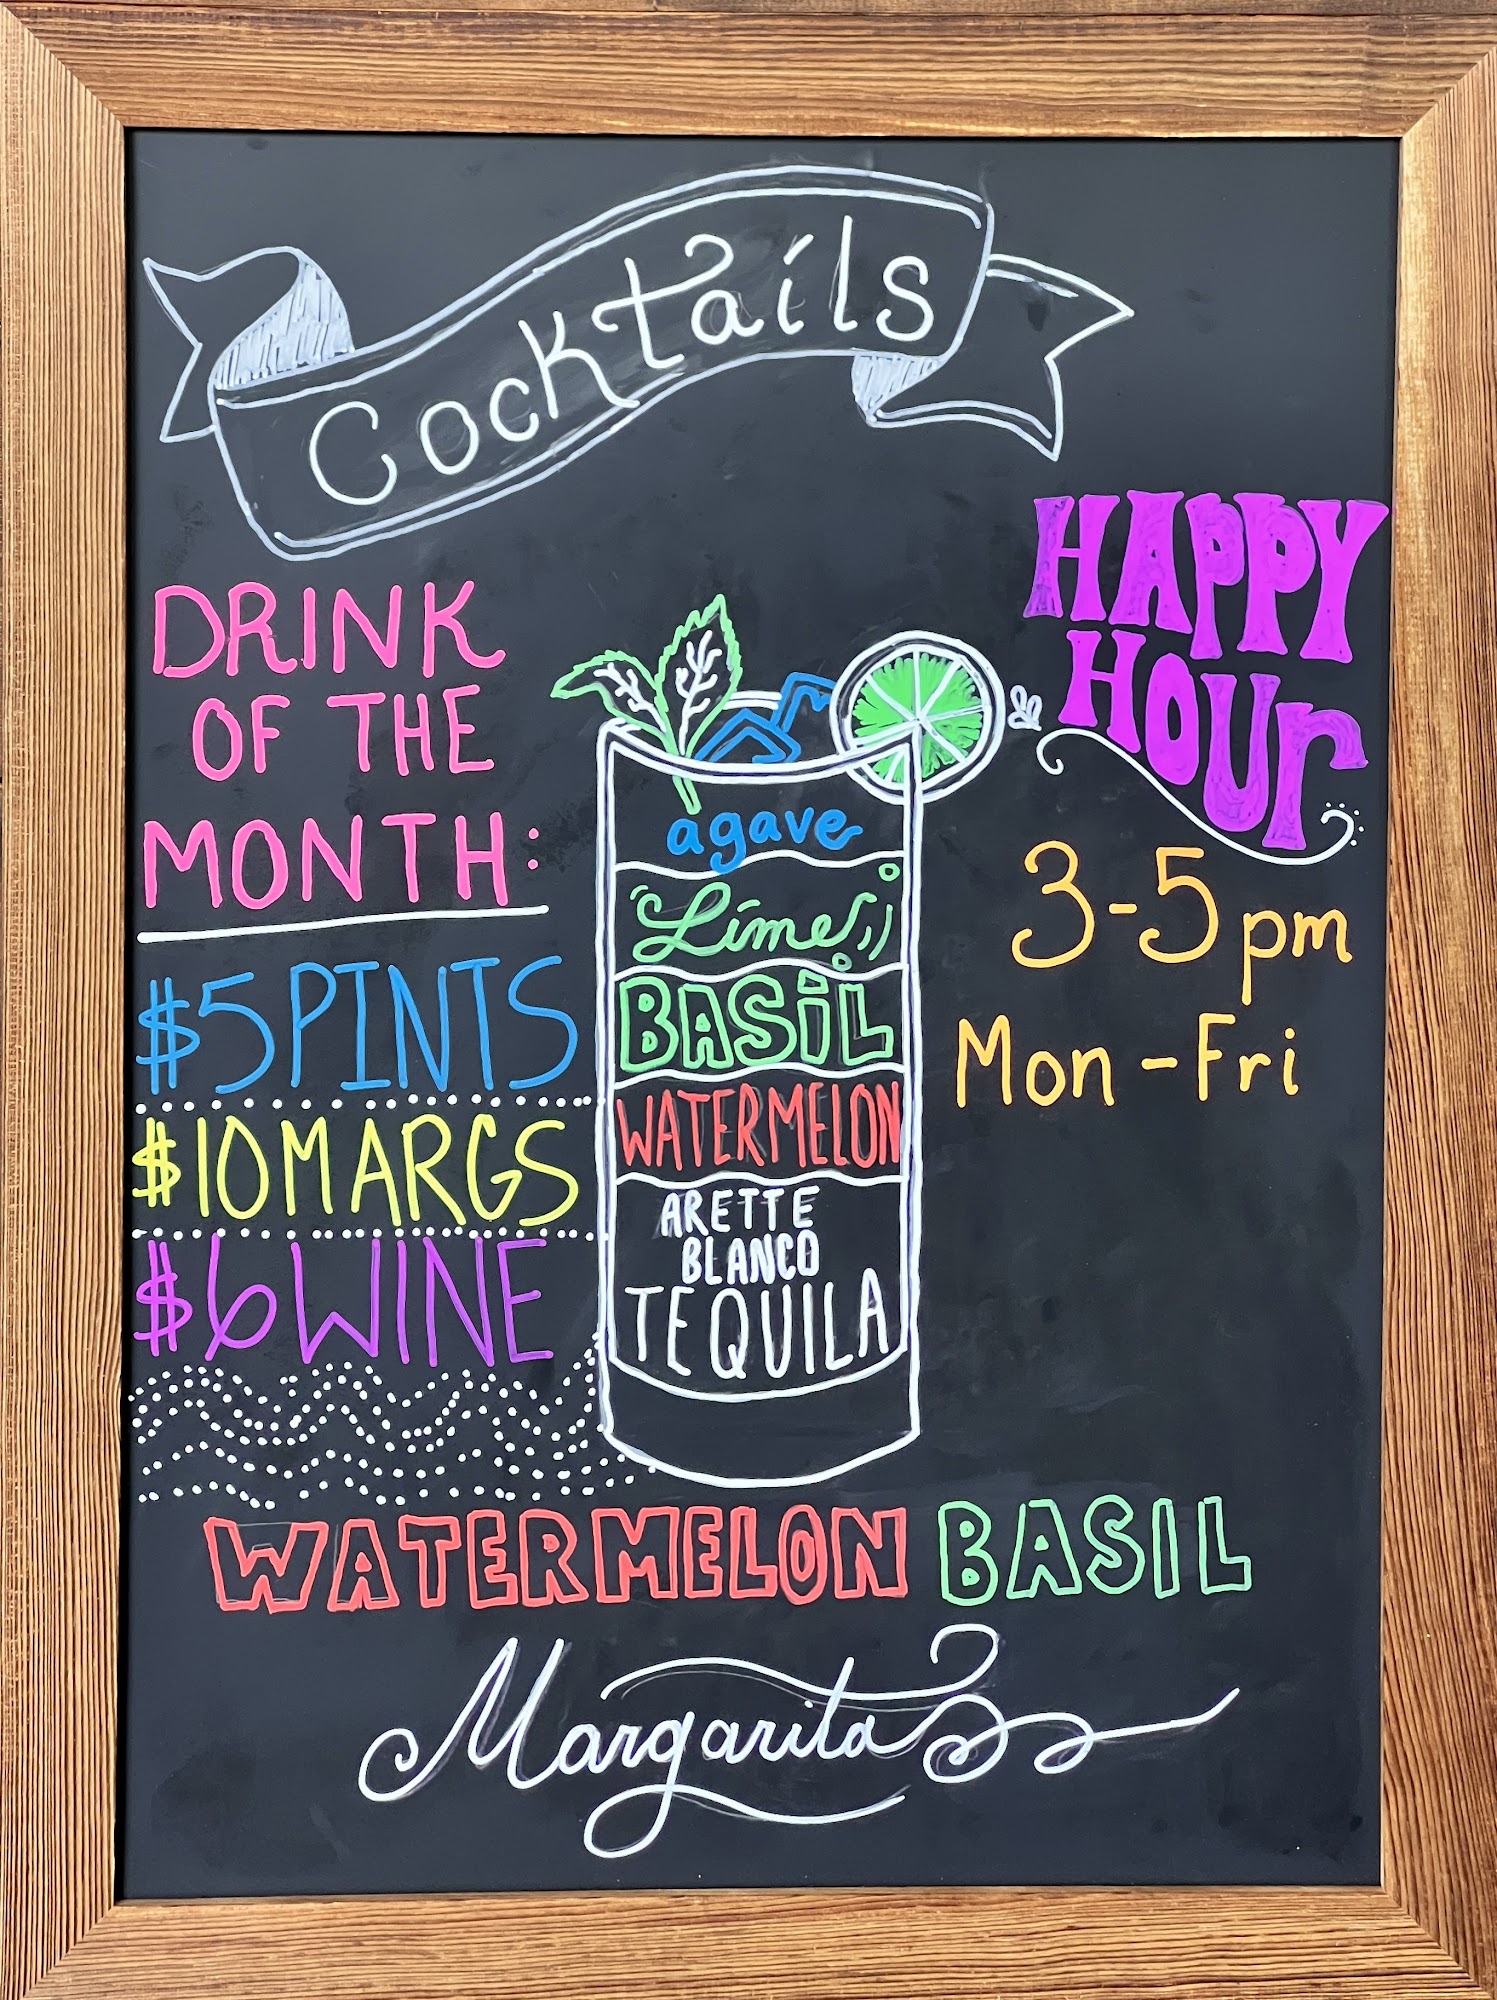 Cocktails
HAPPY
HOUr
3-5pm
Mon-Fri
DRINK
OF THE
MONTH:
$5 PINTS
$10 MARGS
$6 WINE
agave
Lime
BASiL
WATERMELON
ARETTE
BLANCO
TEQUILA
WATERMELON BASIL
Margarita